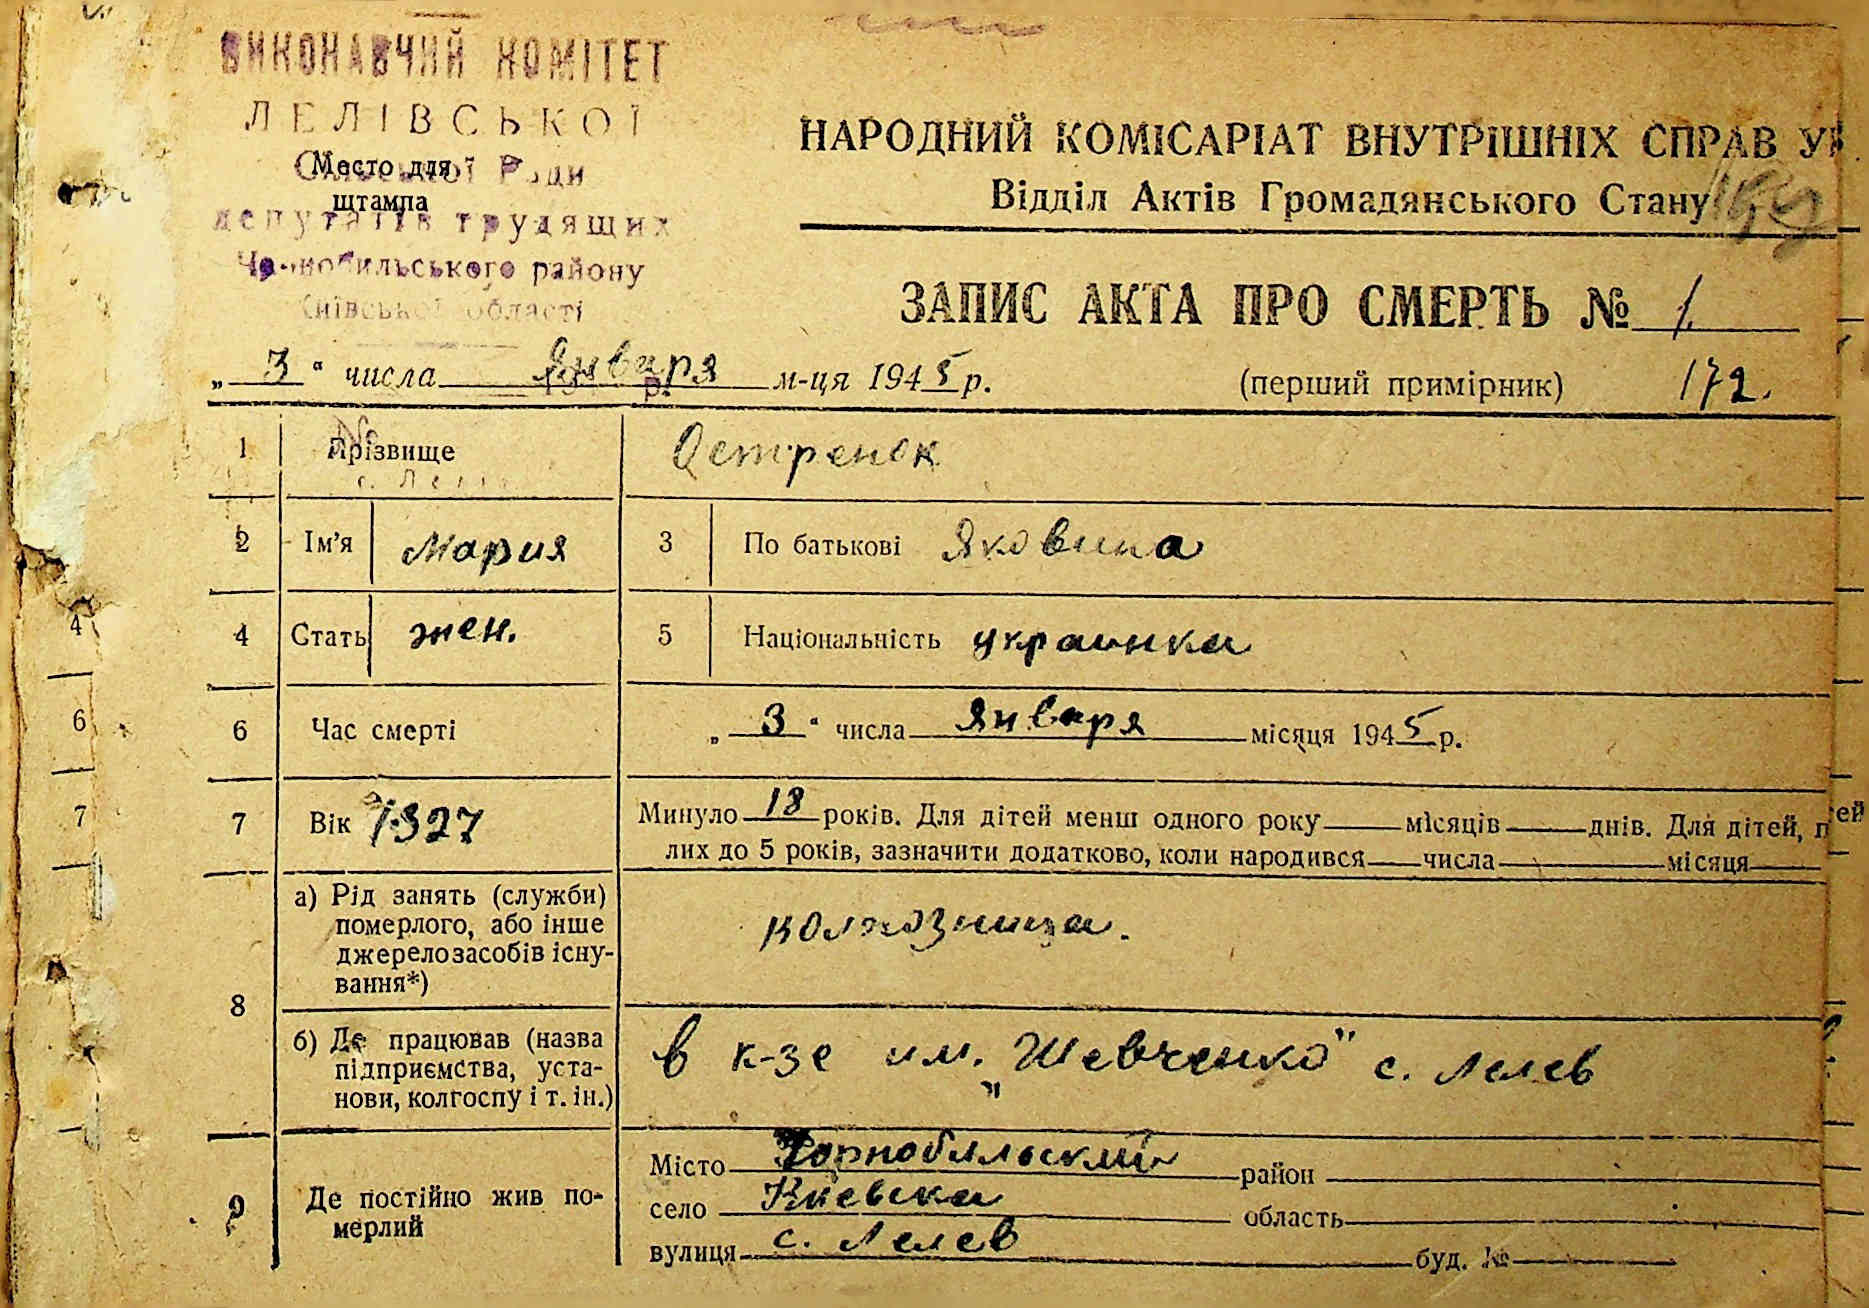 ВИКОНАВЧИЙ КОМІТЕТ
ЛЕЛІВСЬКОЇ
Ради
Место для
штампа
депутатів трудящих
Чорнобильського району
Київської області
НАРОДНИЙ КОМІСАРІАТ ВНУТРІШНІХ СПРАВ
Відділ Актів Громадянського Стану
ЗАПИС АКТА ПРО СМЕРТЬ № 1.
„ 3 “ числа Января м-ця 1945 р.
(перший примірник) 172.
1 Прізвище Остренок
2 Ім'я Мария 3 По батькові Яковина
4 Стать жен. 5 Національність украинка
6 Час смерті „ 3 “ числа Января місяця 1945 р.
7 Вік 1927 Минуло 18 років. Для дітей менш одного року місяців днів. Для дітей,
лих до 5 років, зазначити додатково, коли народився числа місяця
8 а) Рід занять (служби)
померлого, або інше
джерело засобів існу-
вання*)
колхозница.
б) Де працював (назва
підприємства, уста-
нови, колгоспу і т. ін.)
в к-зе им. „Шевченко" с. Лелев
9 Де постійно жив по-
мерлий
Місто Чорнобильский район
село Киевска область
вулиця с. Лелев буд. №
4
6
7